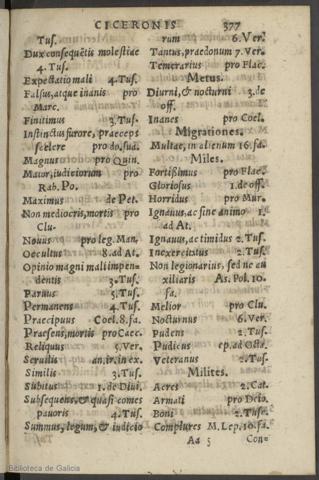 CICERONIS 377
Tus.
Dux consequẽtis molestiae
4. Tus.
Expectatio mali 4. Tus.
Falsus, atque inanis pro
Marc.
Finitimus 3. Tus.
Instinctus furore, praeceps
scelere pro do. sua.
Magnus pro Quin.
Maior, iudiciorum pro
Rab. Po.
Maximus de Pet.
Non mediocris, mortis pro
Clu-
Nouus pro leg. Man.
Occultus 8. ad At.
Opinio magni mali impen-
dentis 3. Tus.
Paruus 5. Tus.
Permanens 4. Tus.
Praecipuus Coel. 8. fa.
Praesens, mortis pro Caec.
Reliquus 5. Ver.
Seruilis an. ir. in ex.
Similis 3. Tus.
Subitus 1. de Diui.
Subsequens, & quasi comes
pauoris 4. Tus.
Summus, legum, & iudicio
rum 6. Ver.
Tantus, praedonum 7. Ver.
Temerarius pro Flac.
Metus.
Diurni, & nocturni 3. de
off.
Inanes pro Coel.
Migrationes.
Multae, in alienum 16. fa.
Miles.
Fortissimus pro Flac.
Gloriosus 1. de off.
Horridus pro Mur.
Ignauus, ac sine animo 1.
ad At.
Ignauus, ac timidus 2. Tus.
Inexercitatus 2. Tus.
Non legionarius, sed ne au
xiliaris As. Pol. 10.
fa.
Melior pro Clu.
Nocturnus 6. Ver.
Pudens 2. Tus.
Pudicus ep. ad Octa.
Veteranus 2. Tus.
Milites.
Acres 2. Cat.
Armati pro Deio.
Boni 2. Tusc.
Complures M. Lep. 10. fa.
Aa 5 Con-
Biblioteca de Galicia